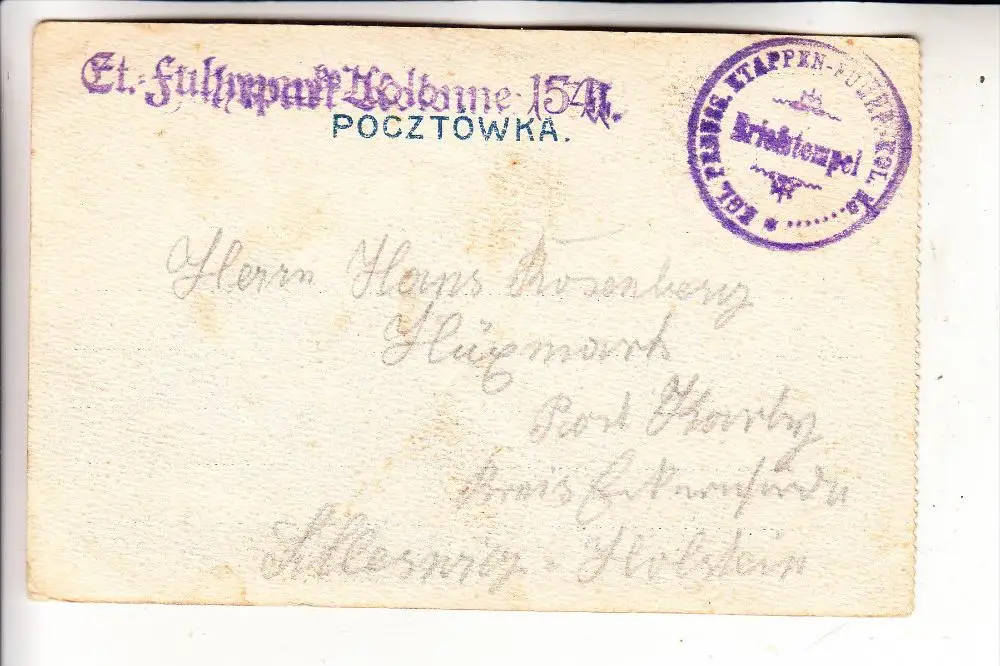 Et.-Fuhrpark Kolonne 154.
POCZTOWKA.
KGL. PREUSS. ETAPPEN-FUHRP.-KOL. No. ........ *
Briefstempel
Herrn Hans Rosenberg
Hüxmark
Post Karby
Kreis Eckernförde
Schleswig-Holstein